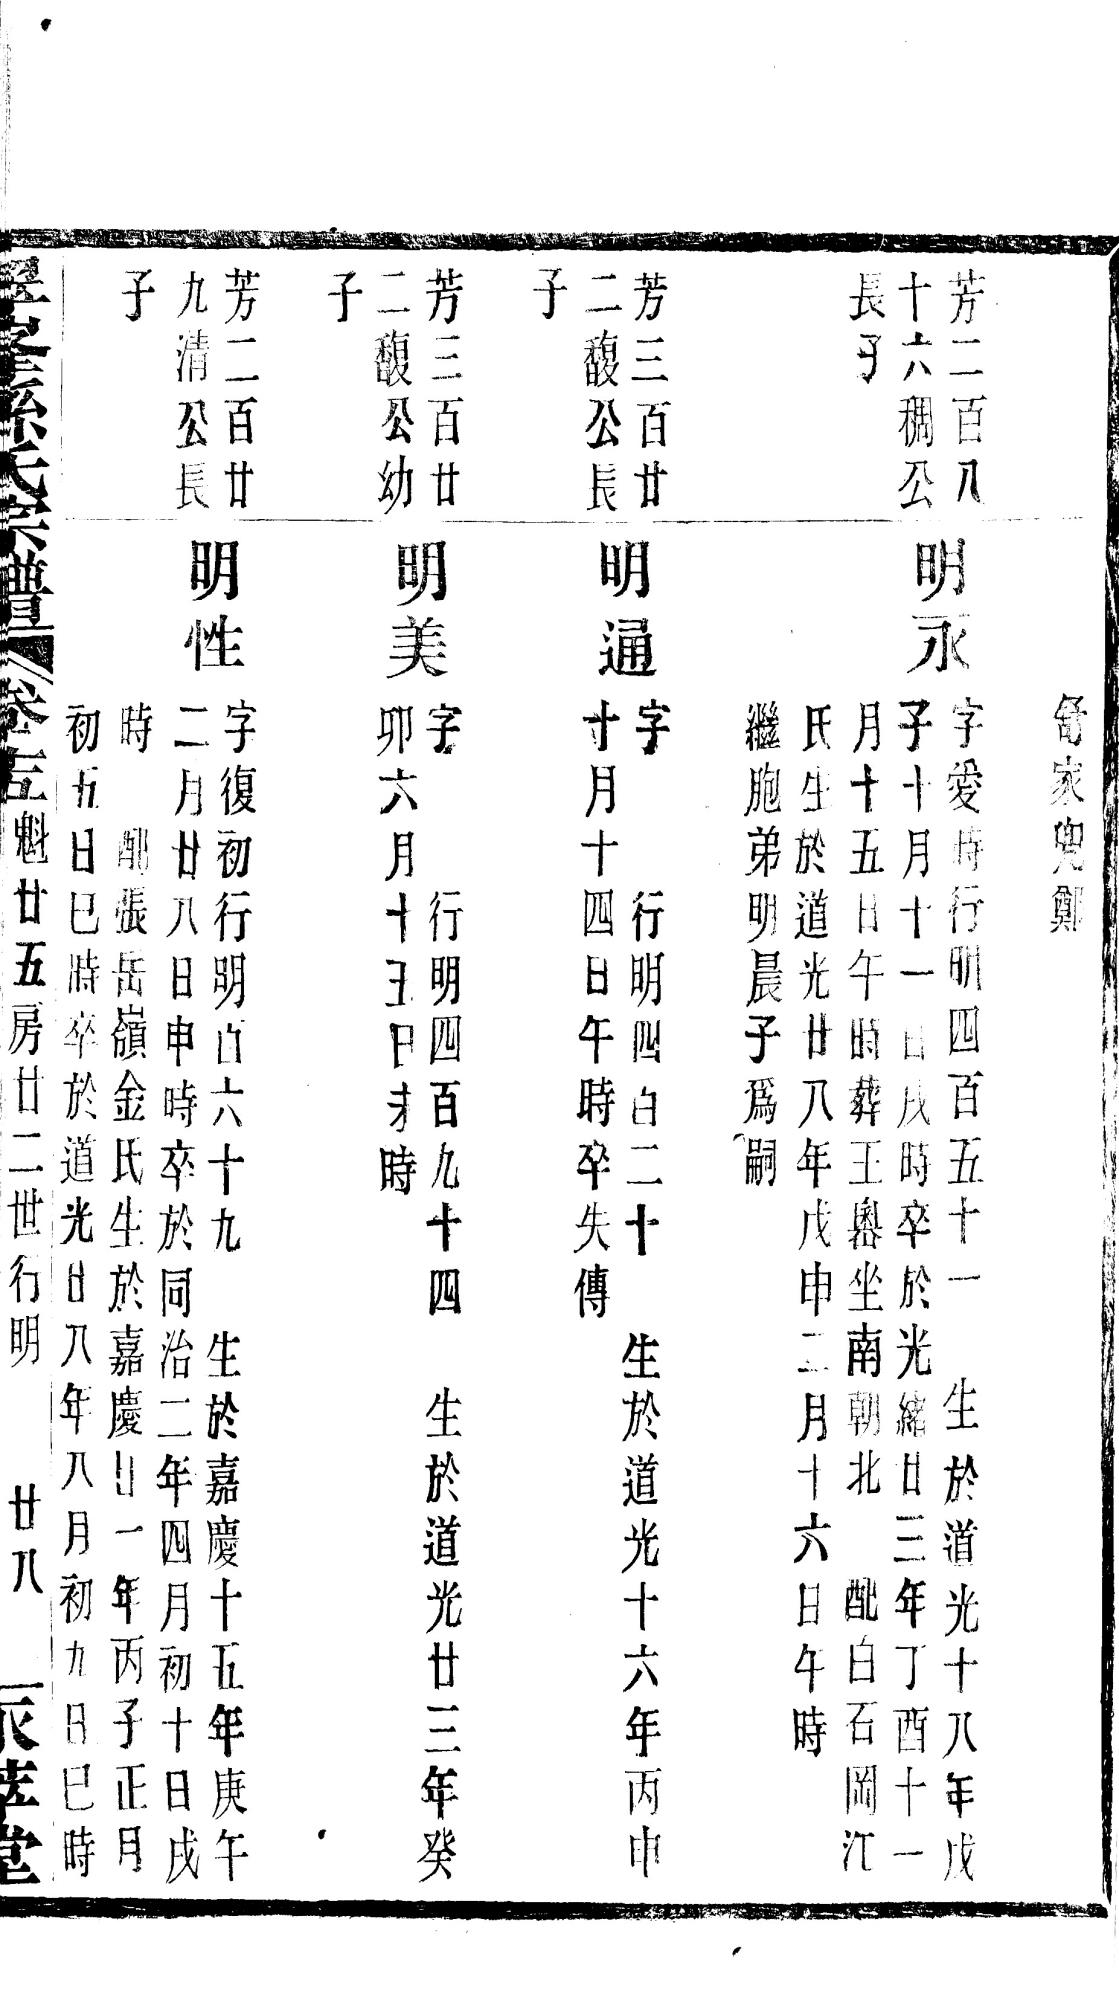 舒家兜鄭
芳二百八
十六稠公
長子
明永
字愛時行明四百五十一　生於道光十八年戊
子十月十一日戌時卒於光緒廿三年丁酉十一
月十五日午時葬王嶴坐南朝北　配白石岡江
氏生於道光廿八年戊申二月十六日午時
繼胞弟明晨子爲嗣
芳三百廿
二馥公長
子
明通
字　行明四百二十　生於道光十六年丙申
十月十四日午時卒失傳
芳三百廿
二馥公幼
子
明美
字　行明四百九十四　生於道光廿三年癸
卯六月十五日才時
芳二百廿
九清公長
子
明性
字復初行明百六十九　生於嘉慶十五年庚午
二月廿八日申時卒於同治二年四月初十日戌
時　配張岳嶺金氏生於嘉慶廿一年丙子正月
初五日巳時卒於道光廿八年八月初九日巳時
孫氏宗譜　卷左　魁廿五房廿二世行明　廿八　永萃堂